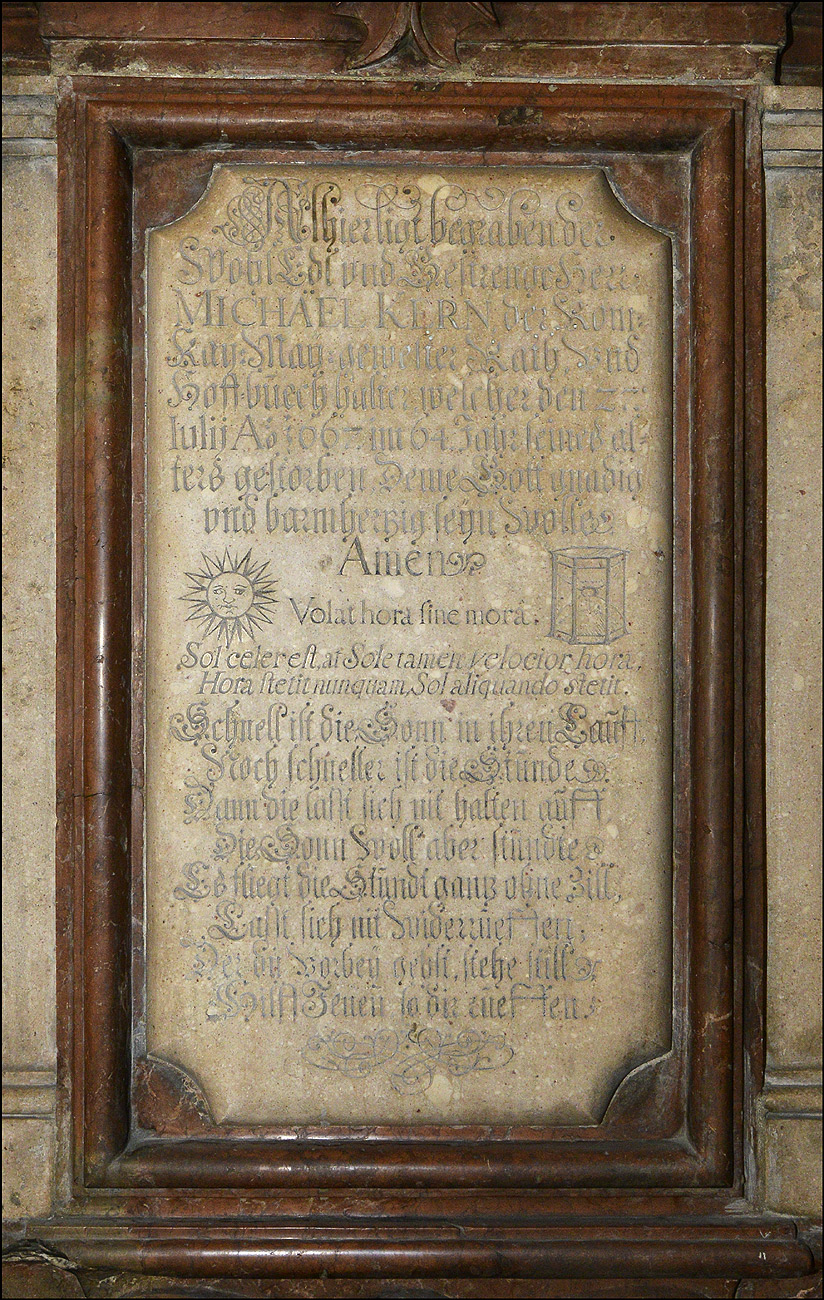 Alhier ligt begraben der
Wohl Edl vnd Gestrenge Herr
MICHAEL KERN, der Röm:
Kay: May: gewester Rath, Vnd
Hoff buech halter welcher den 2
Iulij Aō 1667 im 64 Jahr seines al-
ters gestorben, Deme Gott gnädig
vnd barmhertzig seyn Wolle
Amen
Volat hora sine mora.
Sol celer est, at Sole tamen velocior hora,
Hora stetit nunquam, Sol aliquando stetit.
Schnell ist die Sonn in ihren Lauff,
Noch schneller ist die Stunde
Dann die lasst sich nit halten auff,
Die Sonn Woll aber stundte
Es fliegt die Stundt gantz ohne Zill,
Lasst sich nit Widerrueffen,
Der du Vorbey gehst, stehe still
Hilff Jenen so dir rueffen.